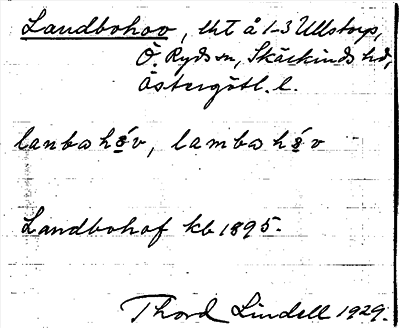 Landbohov, lht å 1-3 Ullstorp,
Ö. Ryds sn, Skärkinds hd,
Östergötl. l.
lanbahóv, lambahóv
Landbohof kb 1895.
Thord Lindell 1929.